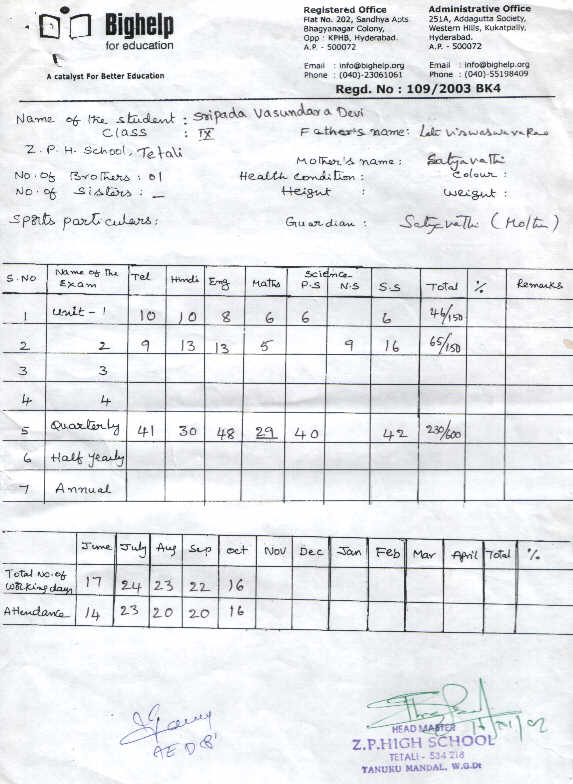 Bighelp
for education
A catalyst For Better Education
Registered Office
Flat No. 202, Sandhya Apts
Bhagyanagar Colony,
Opp : KPHB, Hyderabad.
A.P. - 500072
Email : info@bighelp.org
Phone : (040)-23061061
Administrative Office
251A, Addagutta Society,
Western Hills, Kukatpally,
Hyderabad.
A.P. - 500072
Email : info@bighelp.org
Phone : (040)-55198409
Regd. No : 109/2003 BK4
Name of the student : Sripada Vasundara Devi
Class : IX Father's name: Late Viswaswara Rao
Z.P.H. School, Tetali Mother's name : Satyavathi
No. of Brothers : 01 Health Condition : Colour :
No. of Sisters : — Height : Weight :
Sports particulars: Guardian : Satyavathi (Mother)
S.No Name of the Exam Tel Hindi Eng Maths Science P.S N.S S.S Total % Remarks
1 Unit - 1 10 10 8 6 6 6 46/150
2 2 9 13 13 5 9 16 65/150
3 3
4 4
5 Quarterly 41 30 48 29 40 42 230/600
6 Half Yearly
7 Annual
June July Aug Sep Oct Nov Dec Jan Feb Mar April Total %
Total No. of working days 17 24 23 22 16
Attendance 14 23 20 20 16
HEAD MASTER
Z.P.HIGH SCHOOL
TETALI - 534 218
TANUKU MANDAL, W.G.Dt